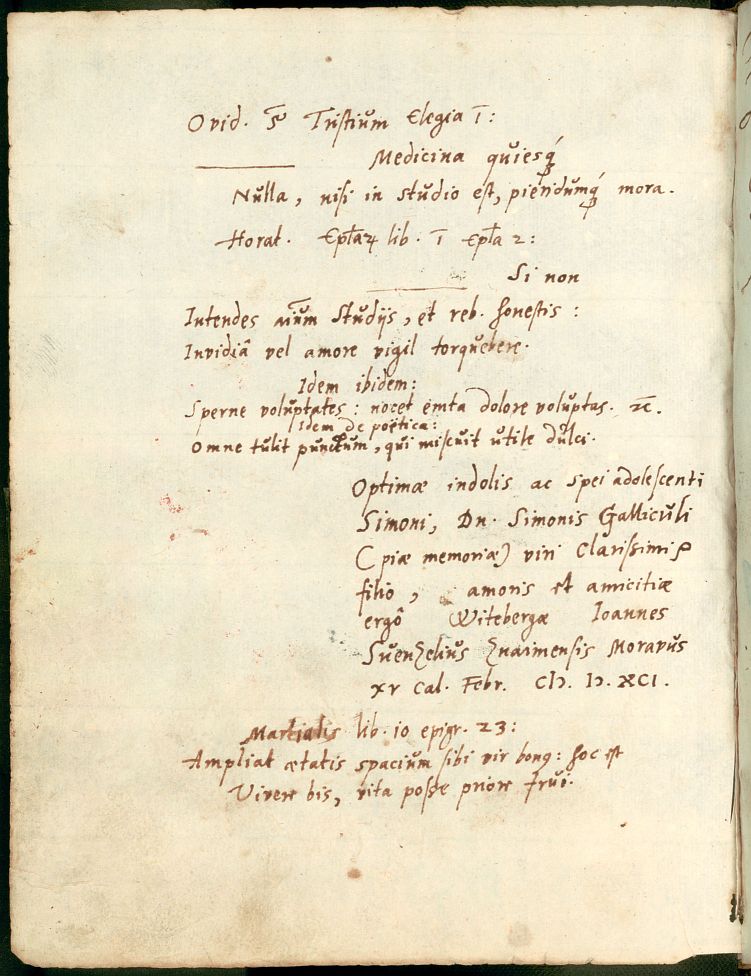 Ovid. 5 Tristium Elegia 1:
Medicina quiesq́
Nulla, nisi in studio est, pieridumq́ mora.
Horat. Epl̃aꝝ lib. 1 Epl̃a 2:
Si non
Intendes aĩum studijs, et reb. honestis:
Invidiâ vel amore vigil torquebere.
Idem ibidem:
Sperne voluptates: nocet emta dolore voluptas. ꝛc̄.
Idem de poëtica:
Omne tulit punctum, qui miscuit utile dulci.
Optimæ indolis ac spei adolescenti
Simoni, Dn. Simonis Galliculi
(piæ memoriæ) viri Clarissimi
filio, amoris et amicitiæ
ergô Witebergæ Ioannes
Suenzelius Znaimensis Moravus
xv Cal. Febr. CIↃ. IↃ. XCI.
Martialis lib. 10 epigr. 23:
Ampliat ætatis spacium sibi vir bonꝰ: hoc est
Vivere bis, vita posse priore frui.